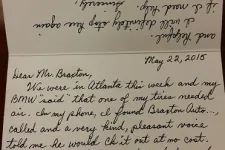 and helpful.
I will definitely stop here again
if I need help.
Sincerely
May 22, 2015
Dear Mr. Braxton,
We were in Atlanta this week and my
BMW "said" that one of my tires needed
air. On my phone, I found Braxton Auto...,
called and a very kind, pleasant voice
told me he would ck it out at no cost.